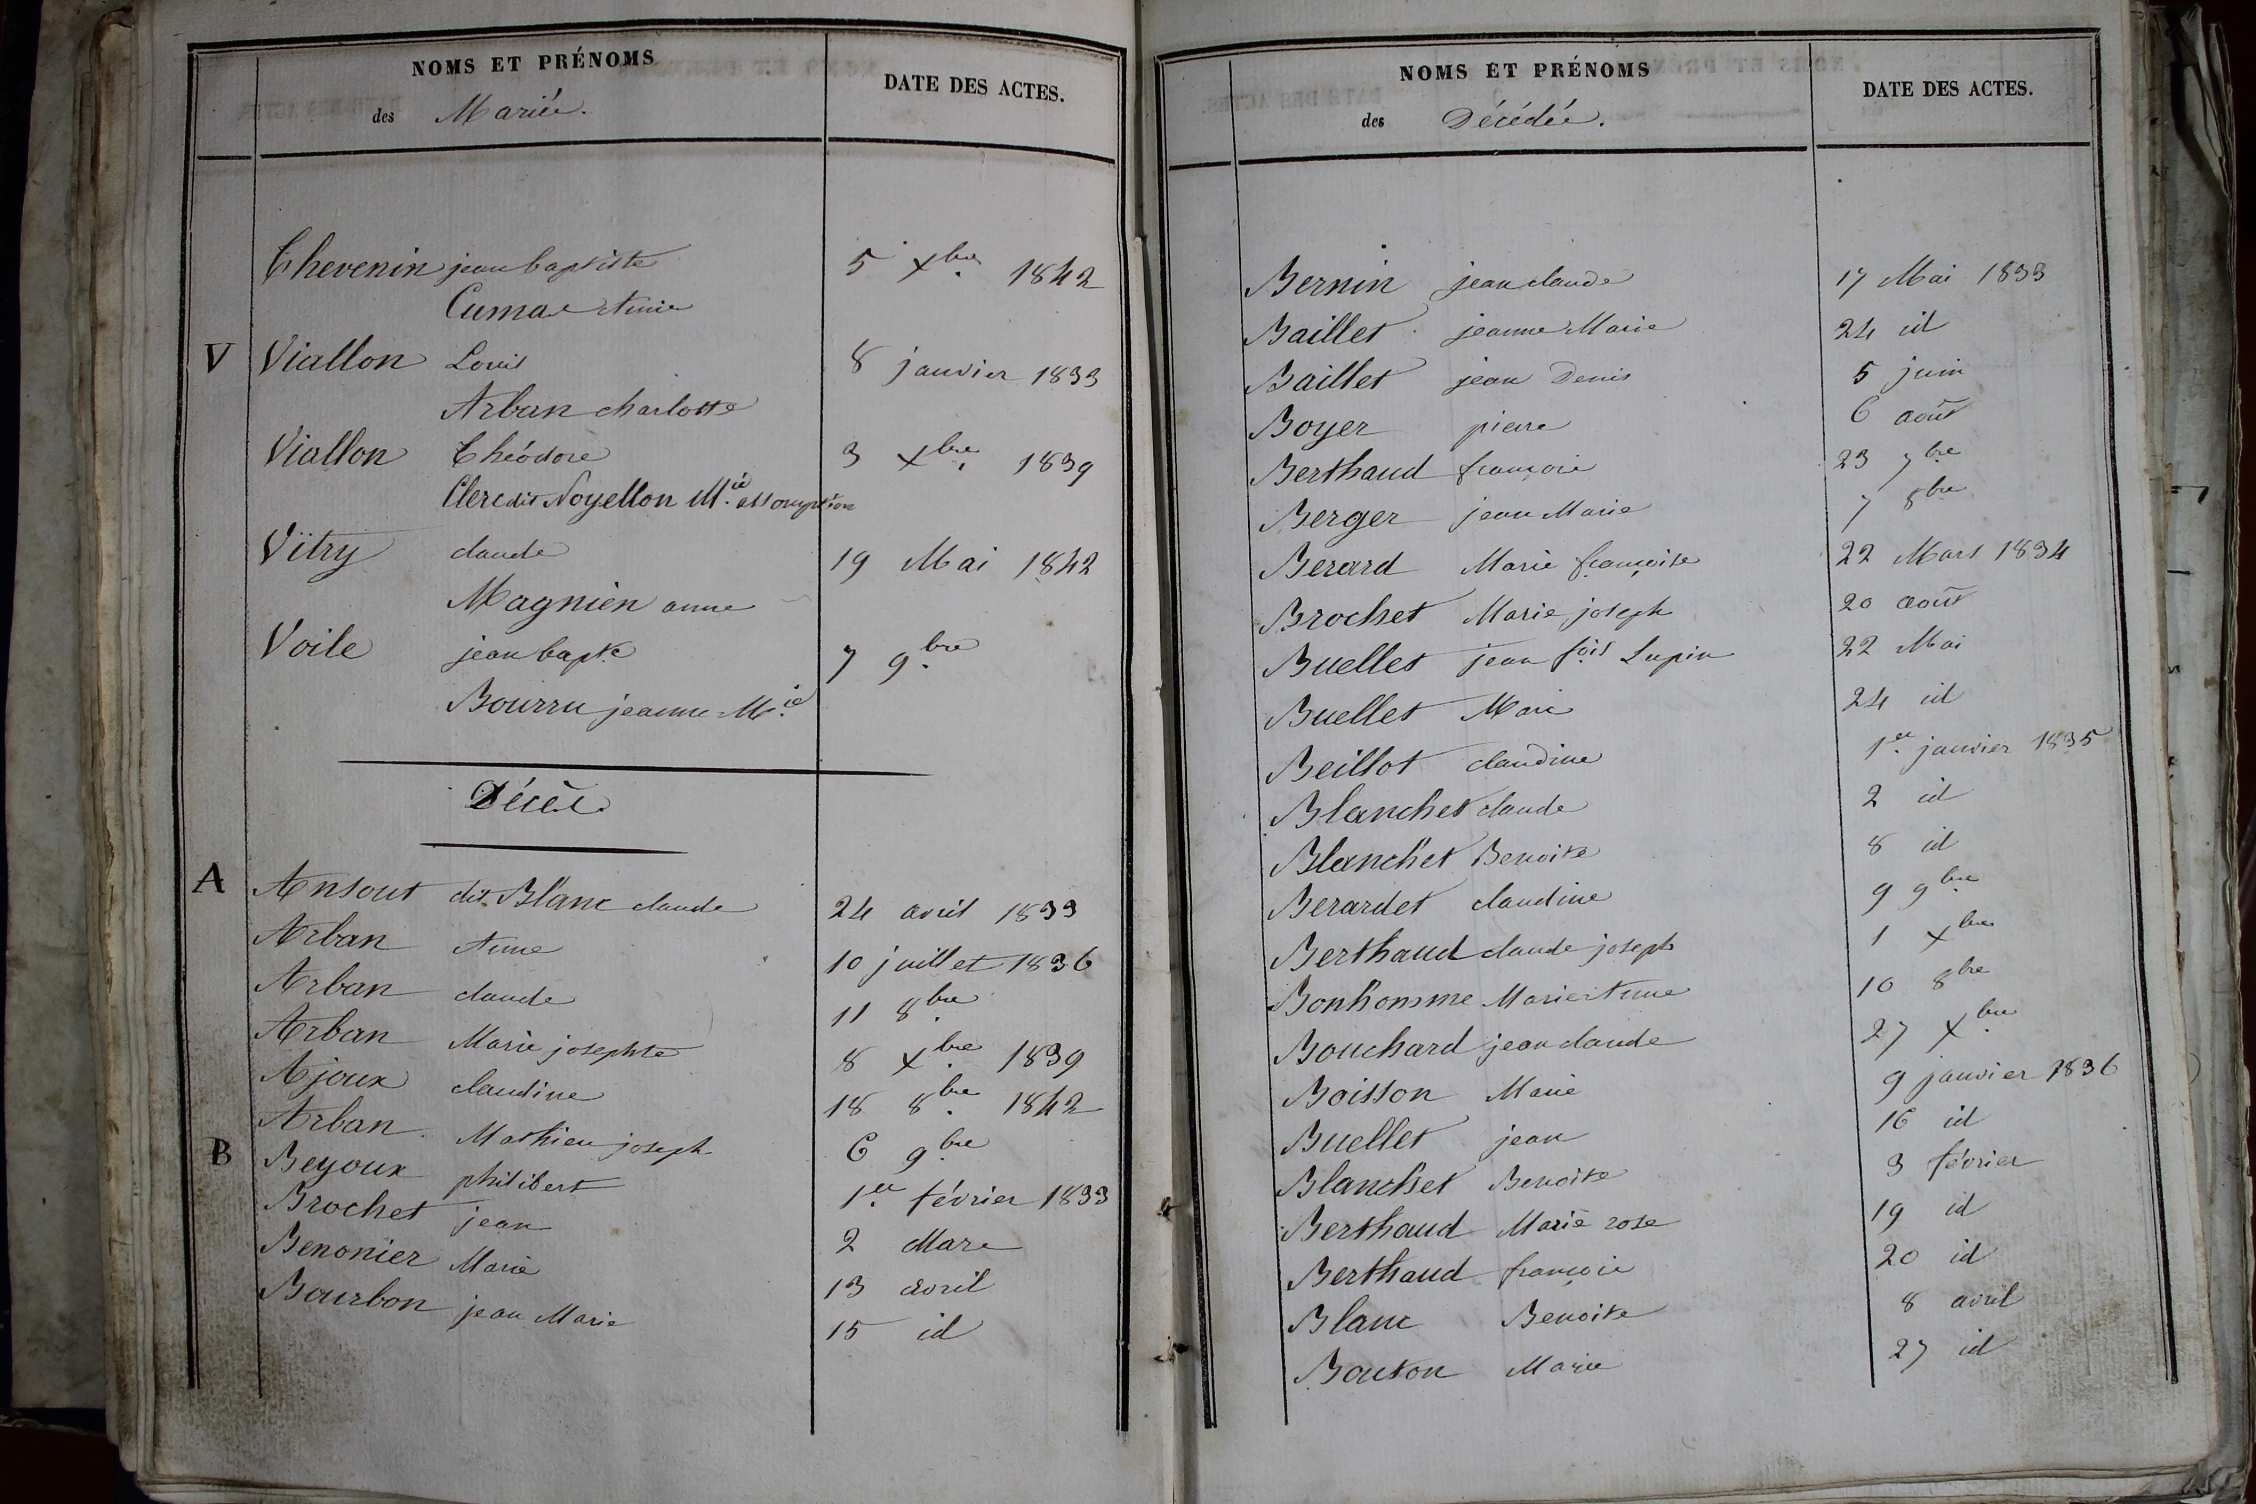 NOMS ET PRÉNOMS
des Mariés.
DATE DES ACTES.
Thevenin jean baptiste 5 Xbre 1842
Cumas Anne
V Viallon Louis 8 janvier 1833
Arban charlotte
Viallon Théodore 3 Xbre 1839
Clerc dit Noyellon Mie assomption
Vitry claude 19 Mai 1842
Magnien anne
Voile jean bapte 7 9bre
Bourru jeanne Mie
Décès.
A Ansout dit Blanc claude 24 avril 1833
Arban Anne 10 juillet 1836
Arban claude 11 8bre
Arban Marie josephte 8 Xbre 1839
Ajoux claudine 18 8bre 1842
Arban Mathieu joseph 6 9bre
B Beyoux philibert 1er février 1833
Brochet jean 2 Mars
Benonier Marie 13 avril
Bourbon jean Marie 15 id
NOMS ET PRÉNOMS
des Décédés.
DATE DES ACTES.
Bernin jean claude 17 Mai 1833
Baillet jeanne Marie 24 id
Baillet jean Denis 5 juin
Boyer pierre 6 août
Berthaud françois 23 7bre
Berger jean Marie 7 8bre
Berard Marie françoise 22 Mars 1834
Brochet Marie joseph 20 août
Buellet jean fois Lupin 22 Mai
Buellet Marie 24 id
Beillot claudine 1er janvier 1835
Blanchet claude 2 id
Blanchet Benoite 8 id
Berardet claudine 9 9bre
Berthaud claude joseph 1 Xbre
Bonhomme Marie Anne 10 8bre
Bouchard jean claude 27 Xbre
Boisson Marie 9 janvier 1836
Buellet jean 16 id
Blanchet Benoite 3 février
Berthaud Marie rose 19 id
Berthaud françois 20 id
Blanc Benoite 8 avril
Bouton Marie 27 id